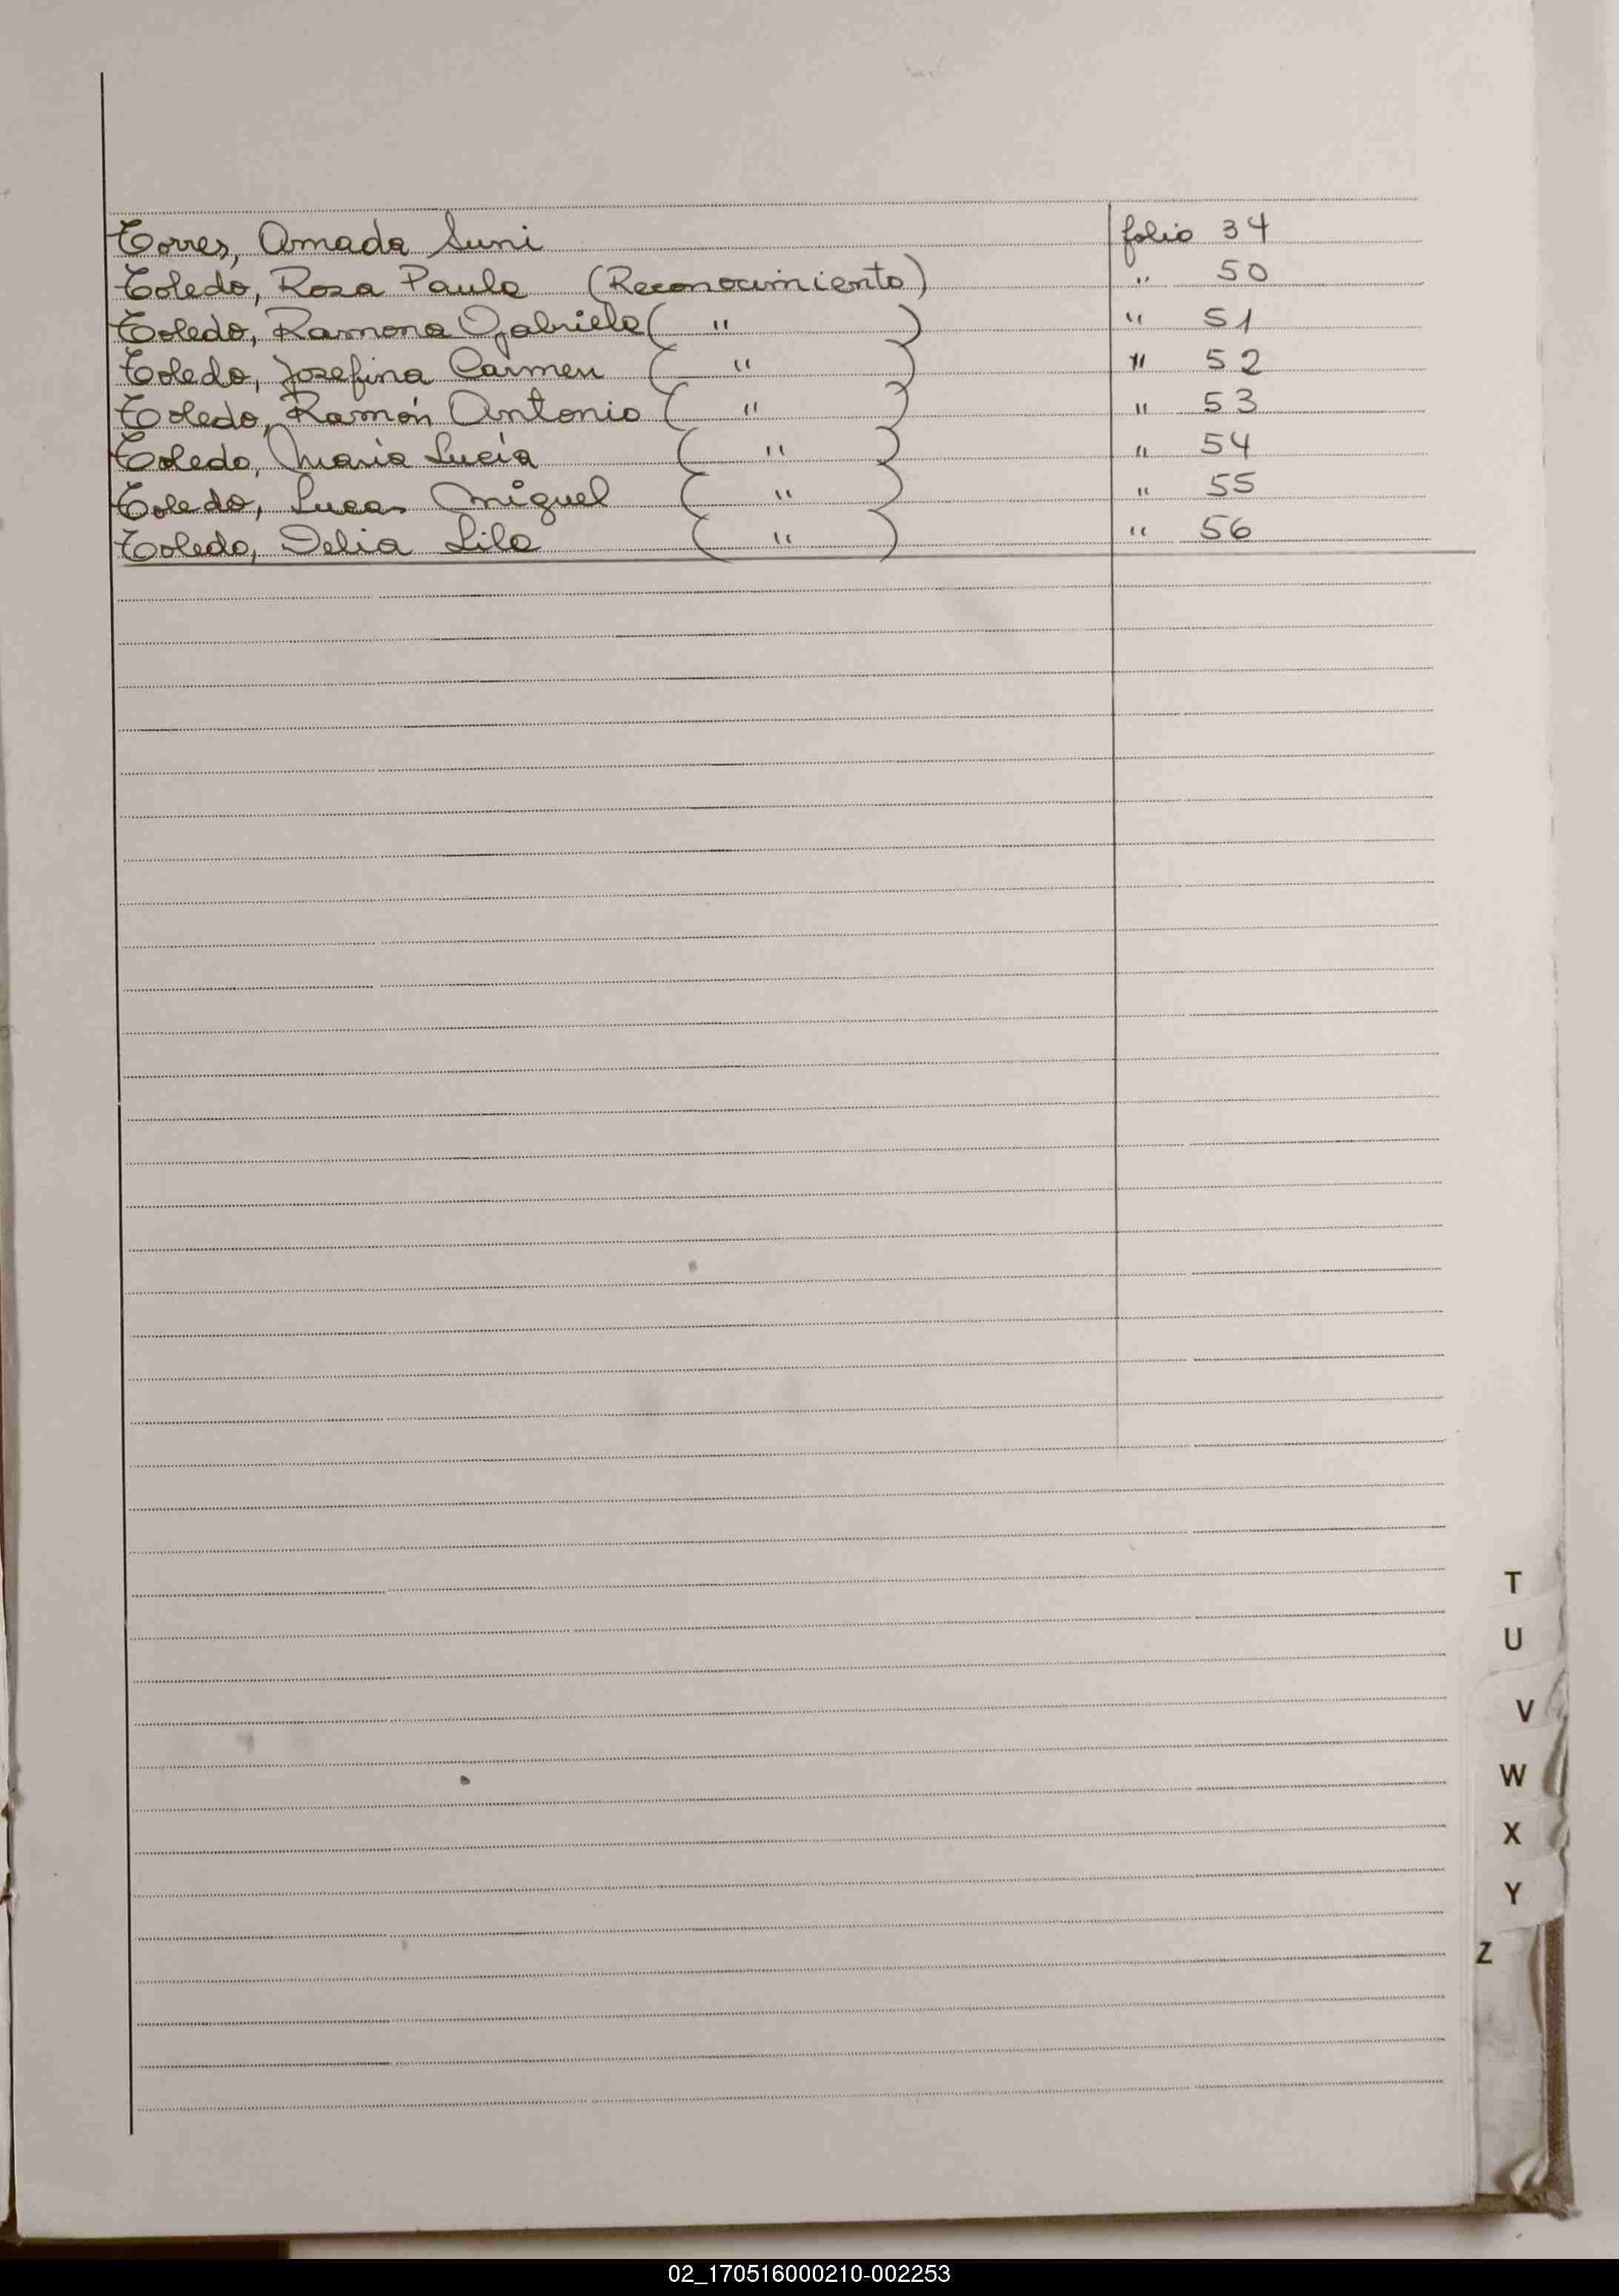 Torres, Amada Suni folio 34
Toledo, Rosa Paula (Reconocimiento) " 50
Toledo, Ramona Gabriela ( " ) " 51
Toledo, Josefina Carmen ( " ) " 52
Toledo, Ramón Antonio ( " ) " 53
Toledo, María Lucía ( " ) " 54
Toledo, Lucas Miguel ( " ) " 55
Toledo, Delia Lila ( " ) " 56
T
U
V
W
X
Y
Z
02_170516000210-002253